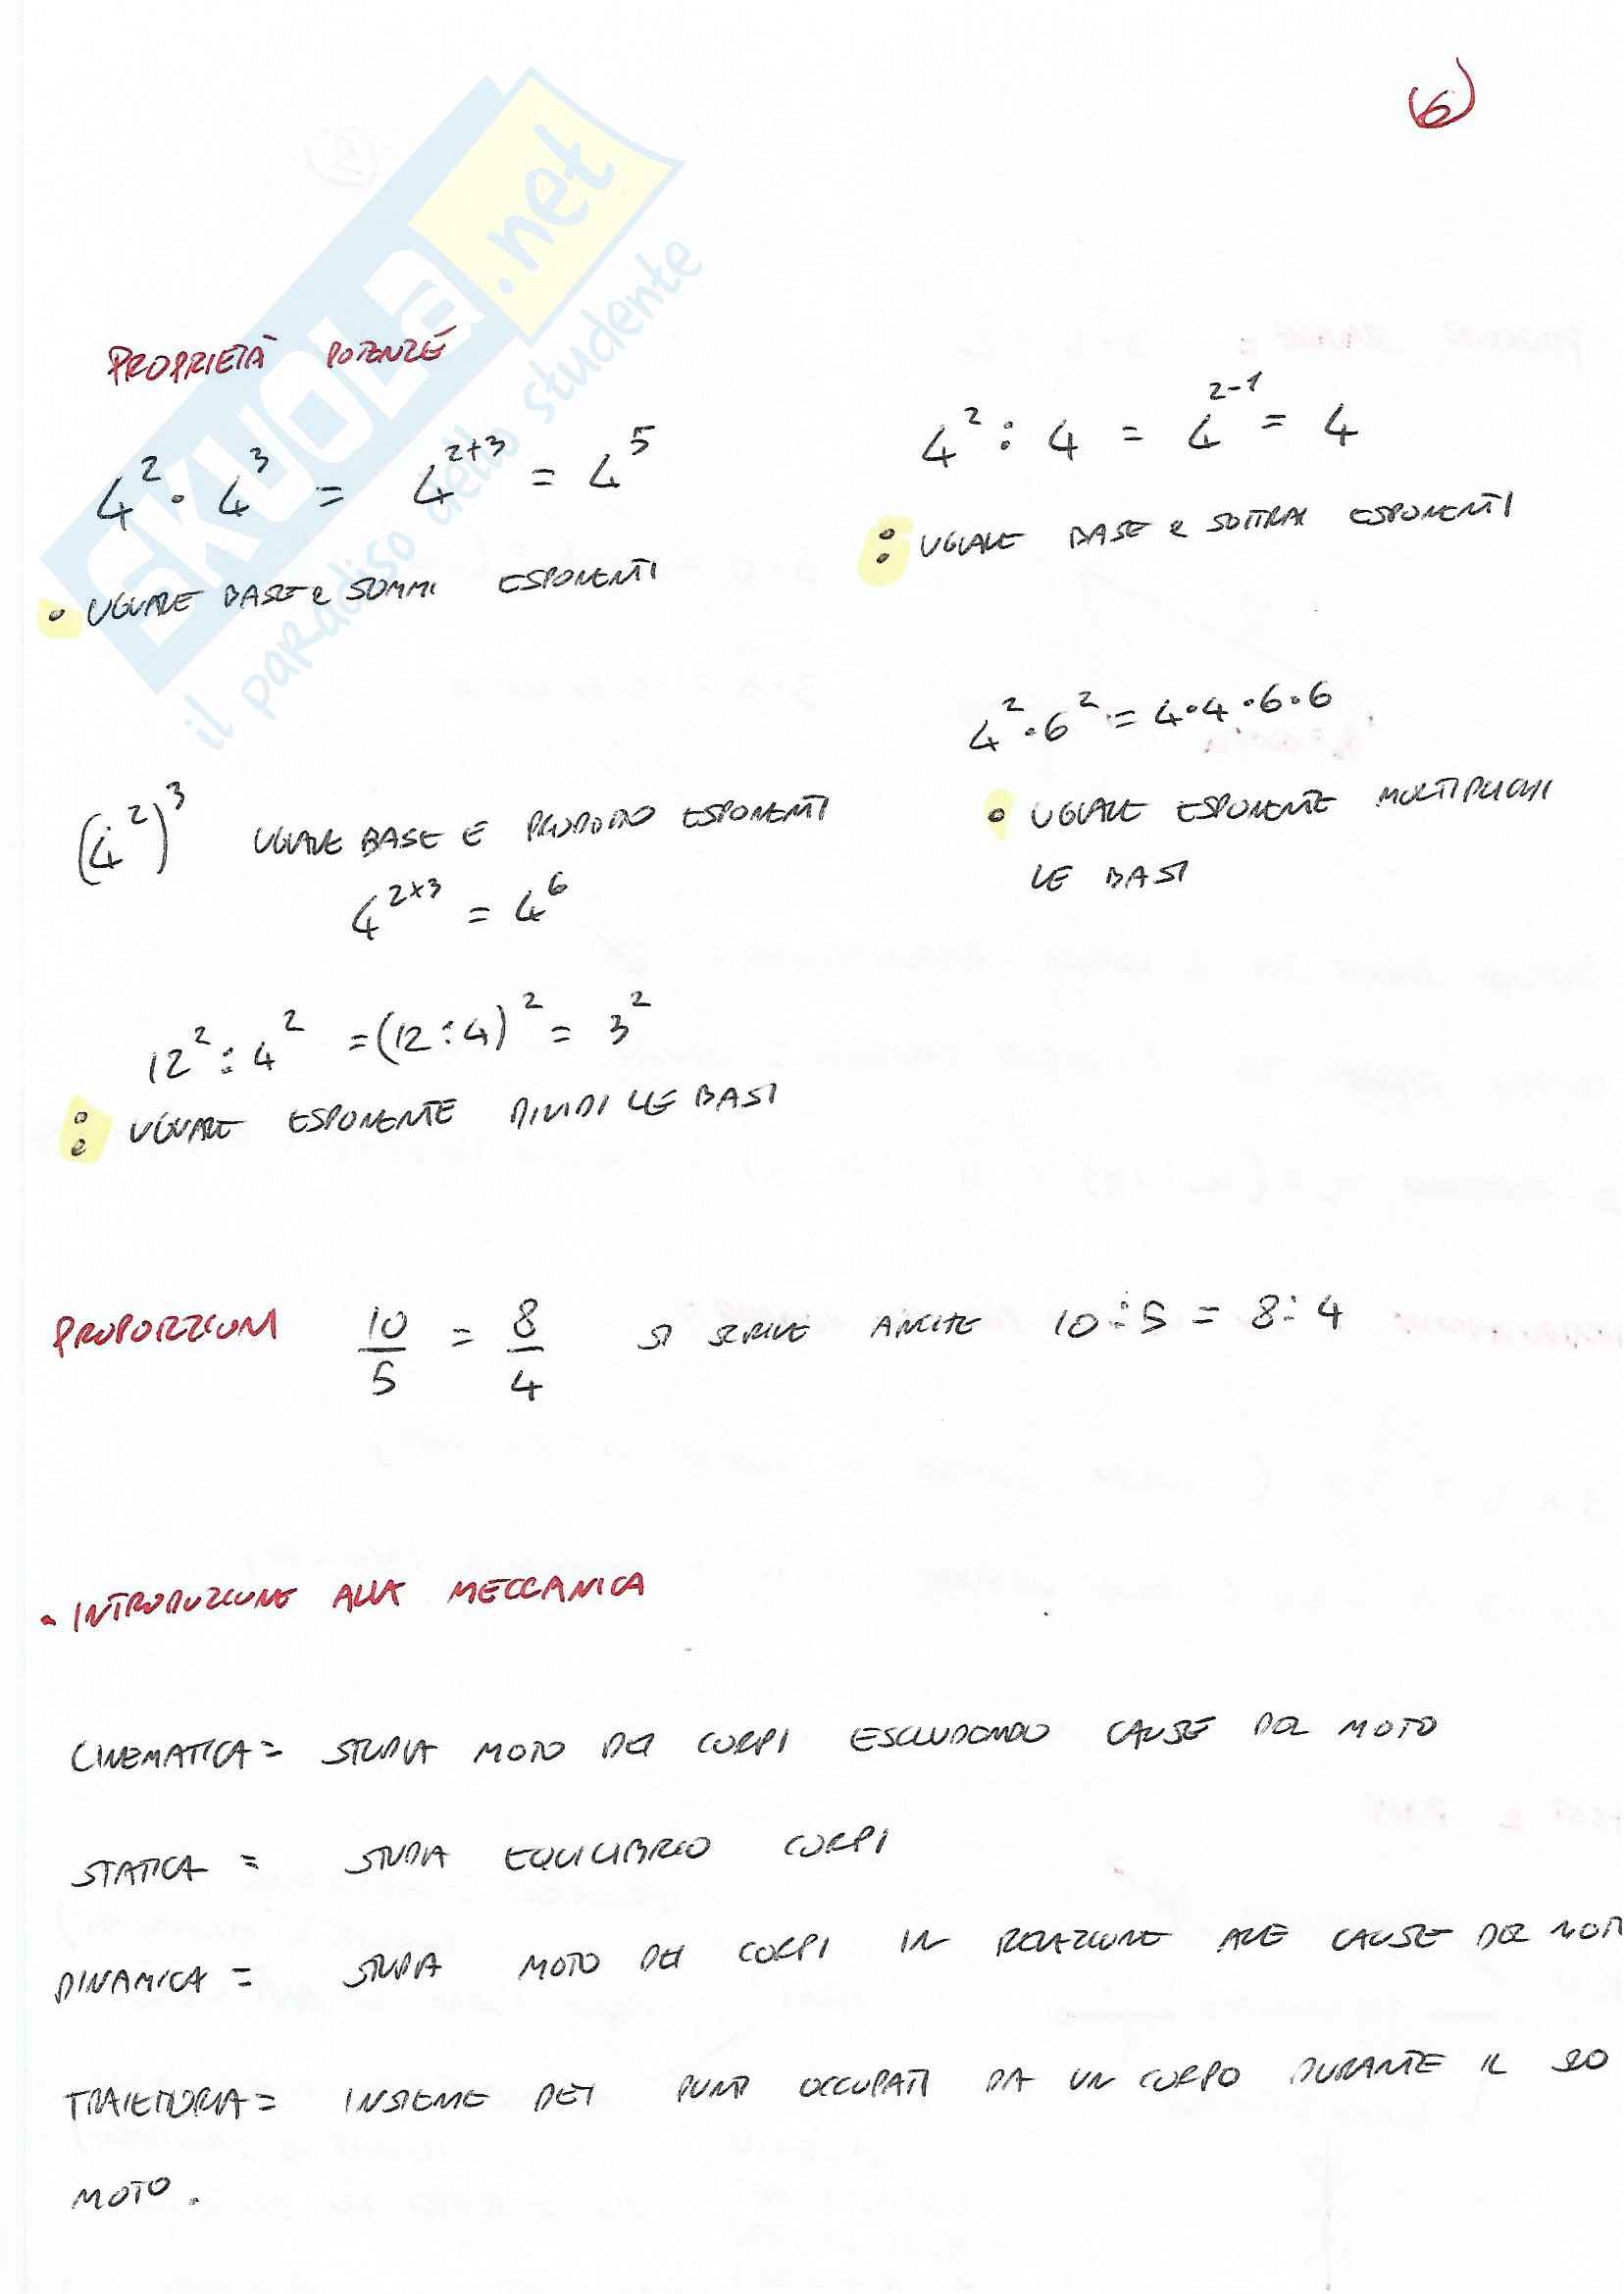 6
SKUOLA.net
il paradiso dello studente
PROPRIETÀ POTENZE
4² · 4³ = 4²⁺³ = 4⁵
• UGUALE BASE e SOMMI ESPONENTI
4² : 4 = 4²⁻¹ = 4
: UGUALE BASE e SOTTRAI ESPONENTI
4² · 6² = 4·4·6·6
• UGUALE ESPONENTE MOLTIPLICHI
LE BASI
(4²)³ UGUALE BASE E PRODOTTO ESPONENTI
4²ˣ³ = 4⁶
12² : 4² = (12:4)² = 3²
: UGUALE ESPONENTE DIVIDI LE BASI
PROPORZIONI 10/5 = 8/4 SI SCRIVE ANCHE 10:5 = 8:4
- INTRODUZIONE ALLA MECCANICA
CINEMATICA = STUDIA MOTO DEI CORPI ESCLUDENDO CAUSE DEL MOTO
STATICA = STUDIA EQUILIBRIO CORPI
DINAMICA = STUDIA MOTO DEI CORPI IN RELAZIONE ALLE CAUSE DEL MOTO
TRAIETTORIA = INSIEME DEI PUNTI OCCUPATI DA UN CORPO DURANTE IL SUO
MOTO.